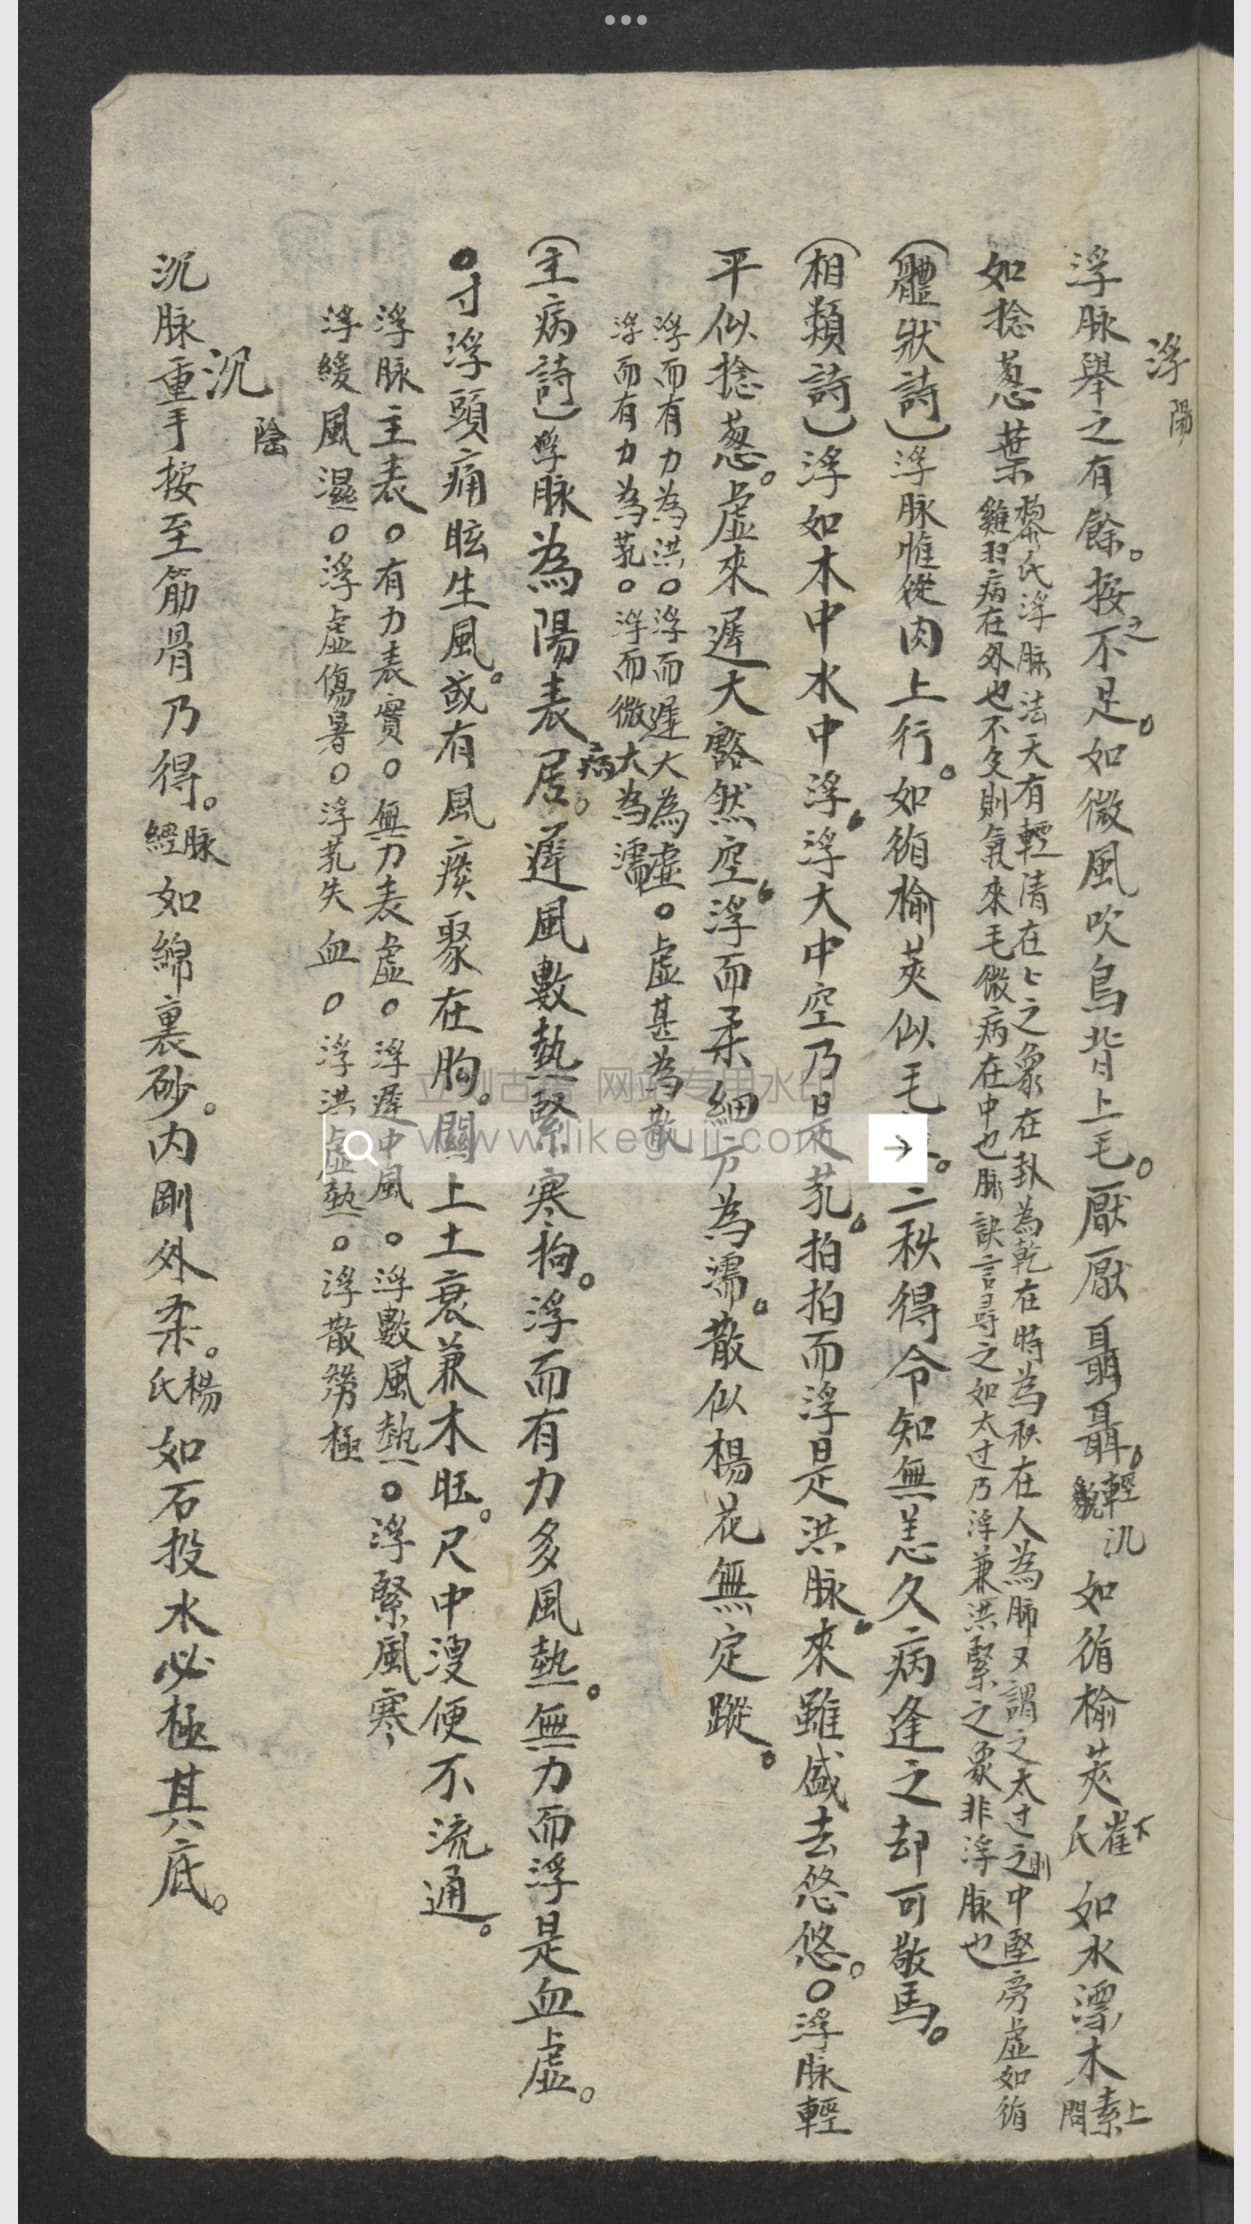 浮 陽
浮脉舉之有餘。按之不足。如微風吹鳥背上毛。厭厭聶聶。輕汎貌如循榆莢崔氏如水漂木素問
如捻葱葉黎氏浮脉法天有輕清在上之象在卦為乾在時為秋在人為肺又謂之太过之則中堅旁虛如循
雞羽病在外也不及則氣來毛微病在中也脉訣言尋之如太过乃浮兼洪緊之象非浮脉也
(體狀詩)浮脉惟從肉上行。如循榆莢似毛。三秋得令知無恙久病逢之却可驚。
(相類詩)浮如木中水中浮。浮大中空乃是芤。拍拍而浮是洪脉。來雖盛去悠悠。○浮脉輕
平似捻葱。虛來遲大豁然空。浮而柔細方為濡。散似楊花無定蹤。
浮而有力為洪○浮而遲大為虛○虛甚為散
浮而有力為芤○浮而微大為濡
(主病詩)浮脉為陽表病居。遲風數熱緊寒拘。浮而有力多風熱。無力而浮是血虛。
●寸浮頭痛眩生風。或有風痰聚在胸。關上土衰兼木旺。尺中溲便不流通。
浮脉主表○有力表實○無力表虛○浮遲中風○浮數風熱○浮緊風寒
浮緩風濕○浮虛傷暑○浮芤失血○浮洪虛熱○浮散勞極
沉 陰
沉脉重手按至筋骨乃得。脉經如綿裹砂。内剛外柔。楊氏如石投水必極其底。
www.likeguji.com